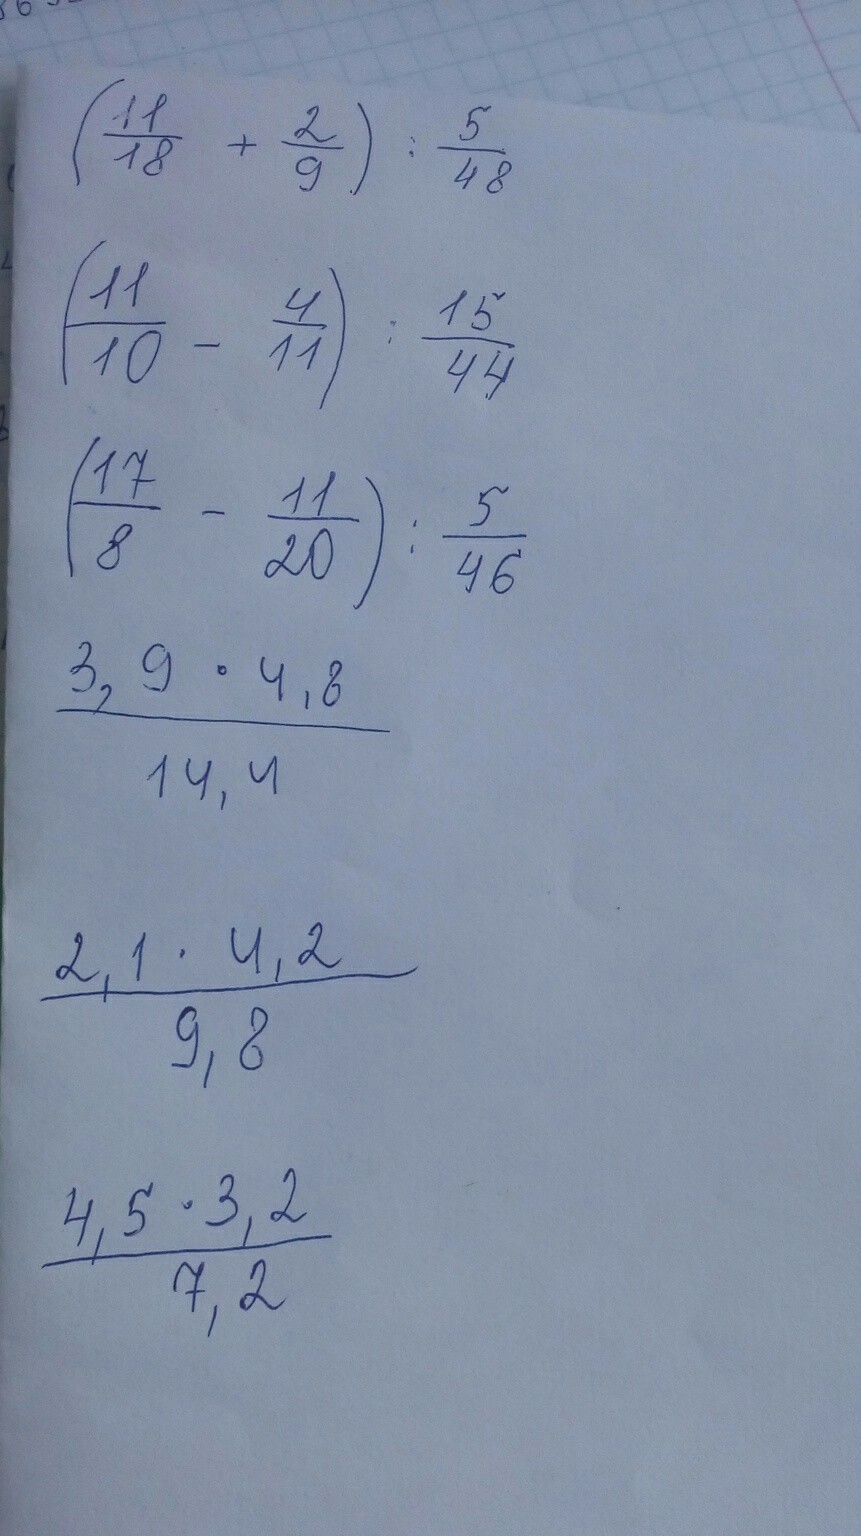 (11/18 + 2/9) : 5/48
(11/10 - 4/11) : 15/44
(17/8 - 11/20) : 5/46
3,9 · 4,8
14,4
2,1 · 4,2
9,8
4,5 · 3,2
7,2